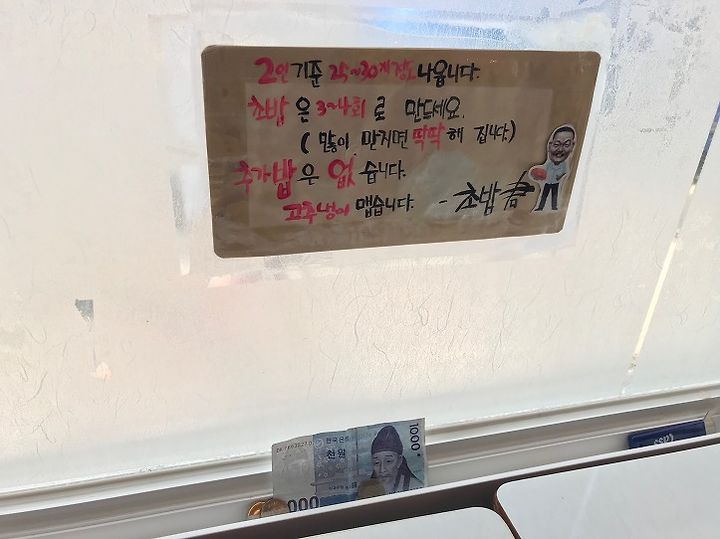 2인기준 25~30개정도 나옵니다.
초밥은 3~4회로 만드세요.
(많이 만지면 딱딱해 집니다.)
추가밥은 없습니다.
고추냉이 맵습니다. - 초밥쿰
한국은행
천원
1000
000